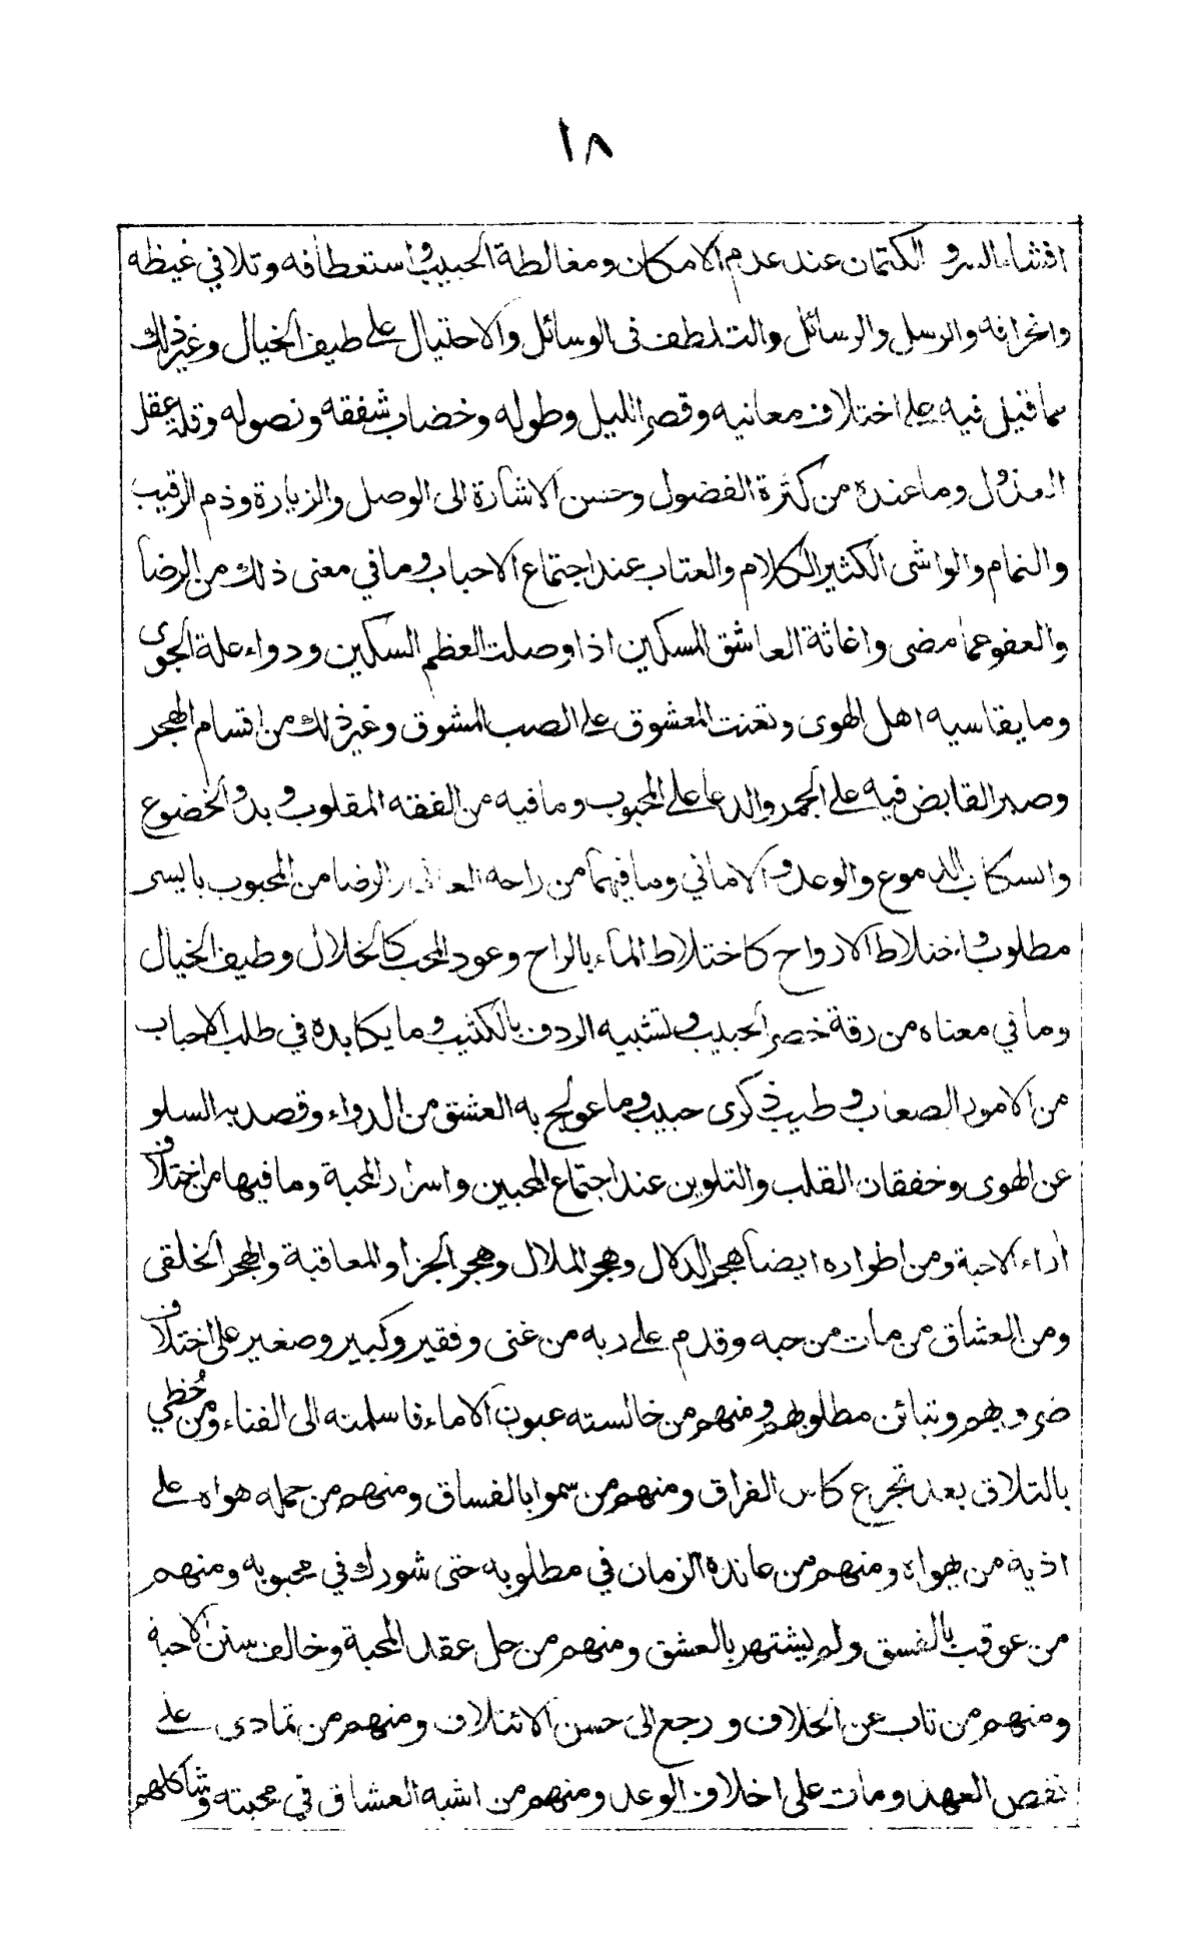 ١٨
افشاء السر و الكتمان عند عدم الامكان ومغالطة الحبيب واستعطافه وتلافي غيظه
وانحرافه والرسل والرسائل والتلطف فى الوسائل والاحتيال على طيف الخيال وغير ذلك
مما قيل فيه على اختلاف معانيه وقصر الليل وطوله وخضاب شفقه ونصوله وقلة عقل
العذول وما عنده من كثرة الفضول وحسن الاشارة الى الوصل والزيارة وذم الرقيب
والنمام والواشى الكثير الكلام والعتاب عند اجتماع الاحباب وما في معنى ذلك من الرضا
والعفو عما مضى واغاثة العاشق المسكين اذا وصلت العظم السكين ودواء علة الجوى
وما يقاسيه اهل الهوى وتعنت المعشوق على الصب المشوق وغير ذلك من اقسام الهجر
وصبر القابض فيه على الجمر والدعا على المحبوب وما فيه من الفقه المقلوب وبدو الخضوع
وانسكاب الدموع والوعد والاماني وما فيهما من راحة الرضا من المحبوب بايسر
مطلوب واختلاط الارواح كاختلاط الماء بالراح وعود المحب كالخلال وطيف الخيال
وما في معناه من رقة خصر الحبيب وتشبيه الردف بالكثيب وما يكابده في طلب الاحباب
من الامور الصعاب وطيب ذكرى حبيب وما عولج به العشق من الدواء وقصد به السلو
عن الهوى وخفقان القلب والتلوين عند اجتماع المحبين واسرار المحبة وما فيها من اختلاف
اراء الاحبة ومن اطواره ايضا هجر الدلال وهجر الملال وهجر الجزا والمعاقبة والهجر الخلقى
ومن العشاق من مات من حبه وقدم على ربه من غنى وفقير وكبير وصغير على اختلاف
ضروبهم وتبائن مطلوبهم ومنهم من خالسته عيون الاماء فاسلمته الى الفناء ومن حُظي
بالتلاق بعد تجرع كاس الفراق ومنهم من سموا بالفساق ومنهم من حمله هواه على
اذية من يهواه ومنهم من عانده الزمان في مطلوبه حتى شورك في محبوبه ومنهم
من عوقب بالفسق ولم يشتهر بالعشق ومنهم من حل عقد المحبة وخالف سنن الاحبة
ومنهم من تاب عن الخلاف ورجع الى حسن الائتلاف ومنهم من تمادى على
نقص العهد ومات على اخلاف الوعد ومنهم من اشبه العشاق في محبته وشاكلهم